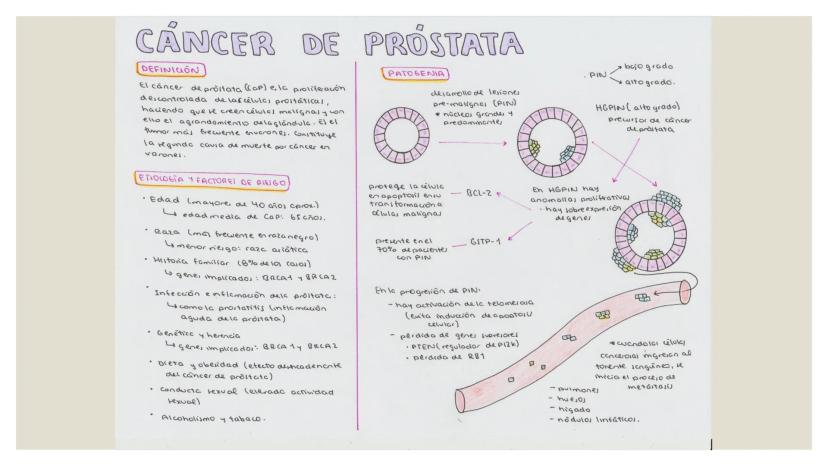 CÁNCER DE PRÓSTATA
DEFINICIÓN
El cáncer de próstata (CaP) es la proliferación
descontrolada de las células prostáticas,
haciendo que se creen células malignas y con
ello el agrandamiento de la glándula. Es el
tumor más frecuente en varones. Constituye
la segunda causa de muerte por cáncer en
varones.
ETIOLOGÍA Y FACTORES DE RIESGO
· Edad (mayores de 40 años aprox.)
↳ edad media de CaP: 65 años.
· Raza (más frecuente en raza negra)
↳ menor riesgo: raza asiática
· Historia familiar (8% de los casos)
↳ genes implicados: BRCA1 y BRCA2
· Infección e inflamación de la próstata:
↳ como la prostatitis (inflamación
aguda de la próstata)
· Genética y herencia
↳ genes implicados: BRCA1 y BRCA2
· Dieta y obesidad (efecto desencadenante
del cáncer de próstata)
· Conducta sexual (elevada actividad
sexual)
· Alcoholismo y tabaco.
PATOGENIA
desarrollo de lesiones
pre-malignas (PIN)
* núcleos grandes y
predominantes
· PIN
→ bajo grado
→ alto grado.
HGPIN (alto grado)
precursor de cáncer
de próstata
protege la célula
en apoptosis en su
transformación a
células malignas
— BCL-2
En HGPIN hay
anomalías proliferativas
- hay sobreexpresión
de genes
presente en el
70% de pacientes
con PIN
— GSTP-1
En la progresión de PIN:
- hay activación de la telomerasa
(evita inducción de apoptosis
celular)
- pérdida de genes supresores
· PTEN (regulador de PI3K)
· pérdida de RB1
* cuando las células
cancerosas ingresan al
torrente sanguíneo, se
inicia el proceso de
metástasis
- pulmones
- huesos
- hígado
- nódulos linfáticos.